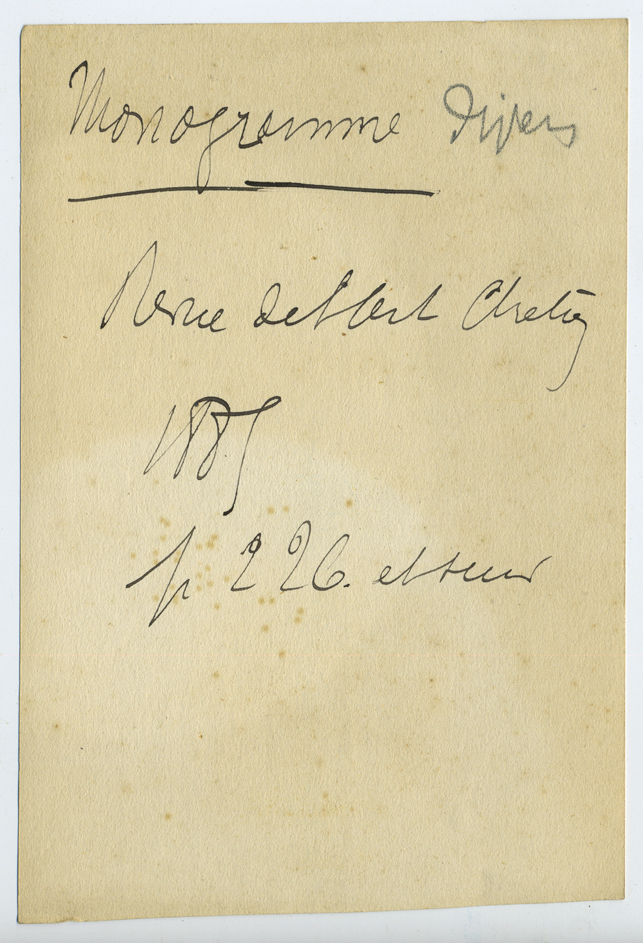 Monogramme Divers
Revue de l'Art Chretien
1885
p 226. et suiv